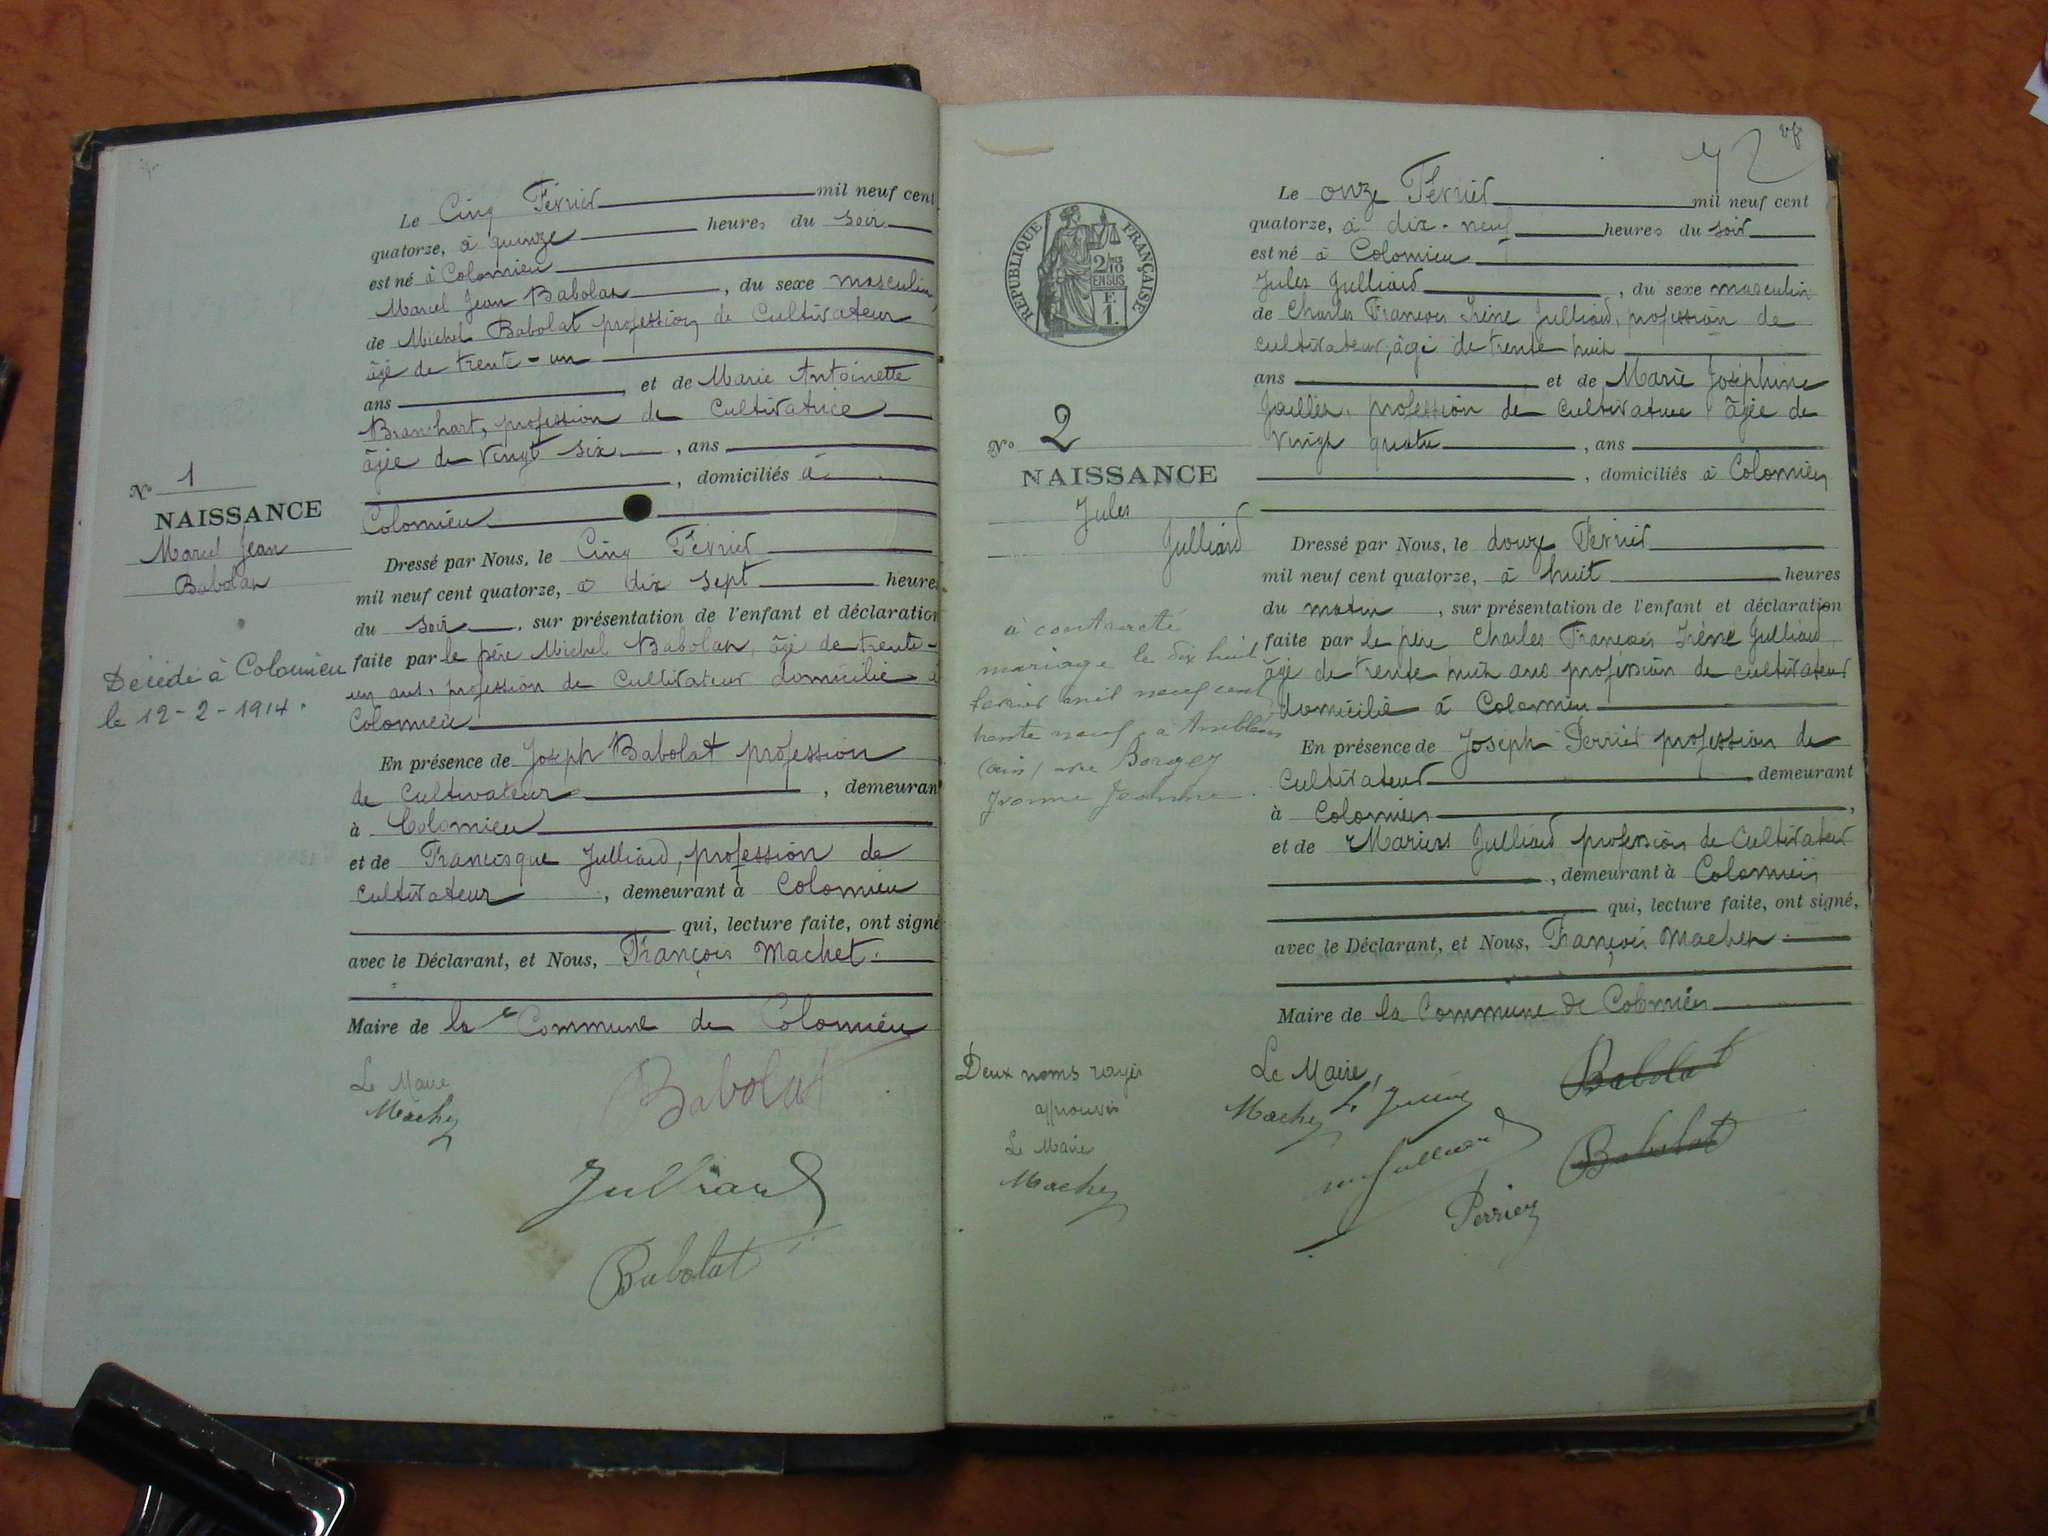 Le Cinq Février mil neuf cent
quatorze, à quinze heures du soir
est né à Colomieu
Marcel Jean Babolat, du sexe masculin,
de Michel Babolat profession de Cultivateur
âgé de trente-un
ans et de Marie Antoinette
profession de Cultivatrice
âgée de vingt six, ans
, domiciliés à
Colomieu
Nº 1
NAISSANCE
Marcel Jean
Babolat
Décédé à Colomieu
le 12-2-1914.
Dressé par Nous, le Cinq Février
mil neuf cent quatorze, à dix sept heures
du soir, sur présentation de l'enfant et déclaration
faite par le père Michel Babolat, âgé de trente-
un ans, profession de Cultivateur domicilié à
Colomieu
En présence de Joseph Babolat profession
de Cultivateur, demeurant
à Colomieu
et de Francisque Julliard, profession de
cultivateur, demeurant à Colomieu
qui, lecture faite, ont signé
avec le Déclarant, et Nous, François Machet.
Maire de la Commune de Colomieu
Le Maire
Machet
Babolat
Julliard
Babolat
72
RÉPUBLIQUE FRANÇAISE
2/10
EN SUS
F.
1.
Le onze Février mil neuf cent
quatorze, à dix-neuf heures du soir
est né à Colomieu
Jules Julliard, du sexe masculin
de Charles François Irène Julliard, profession de
cultivateur, âgé de trente huit
ans et de Marie Joséphine
Jallier, profession de cultivatrice âgée de
vingt quatre, ans
, domiciliés à Colomieu
Nº 2
NAISSANCE
Jules
Julliard
à contracté
mariage le dix huit
février mil neuf cent
trente neuf à Ambléon
(Ain) avec Borgey
Yvonne Jeanne.
Dressé par Nous, le douze Février
mil neuf cent quatorze, à huit heures
du matin, sur présentation de l'enfant et déclaration
faite par le père Charles François Irène Julliard,
âgé de trente huit ans profession de cultivateur
domicilié à Colomieu
En présence de Joseph Perrier profession de
Cultivateur demeurant
à Colomieu,
et de Marius Julliard profession de Cultivateur
, demeurant à Colomieu
qui, lecture faite, ont signé,
avec le Déclarant, et Nous, François Machet.
Maire de la Commune de Colomieu
Deux noms rayés
approuvés
Le Maire
Machet
Le Maire,
Machet
Babolat
Babolat
Julliard
Perrier